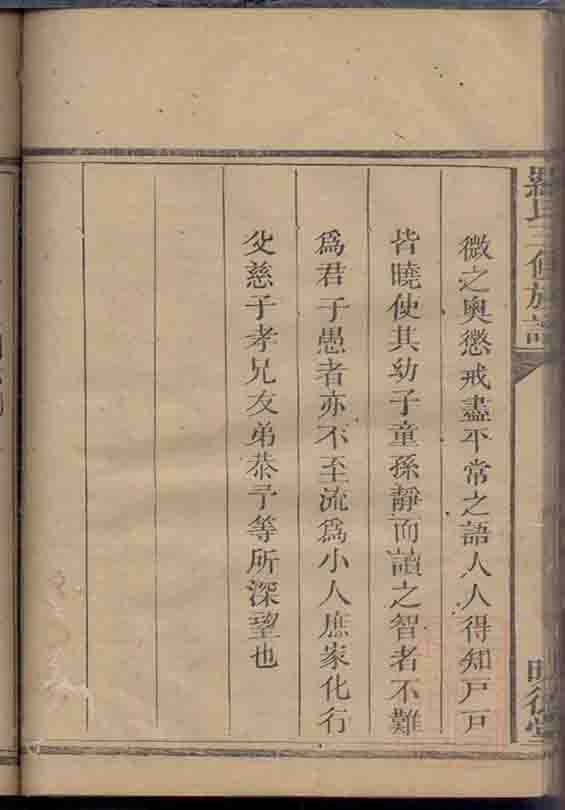 羅氏三修族譜
微之奧懲戒盡平常之語人人得知戶戶
皆曉使其幼子童孫靜而讀之智者不難
為君子愚者亦不至流為小人庶家化行
父慈子孝兄友弟恭予等所深望也